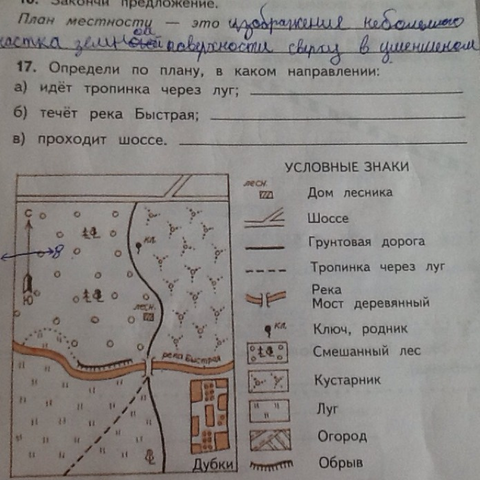 16. Закончи предложение.
План местности — это изображение небольшого
астка земной поверхности сверху в уменшеном
17. Определи по плану, в каком направлении:
а) идёт тропинка через луг;
б) течёт река Быстрая;
в) проходит шоссе.
УСЛОВНЫЕ ЗНАКИ
лесн.
Дом лесника
Шоссе
Грунтовая дорога
Тропинка через луг
Река
Мост деревянный
кл.
Ключ, родник
Смешанный лес
Кустарник
Луг
Огород
Обрыв
С
кл.
В
Ю
лесн.
река Быстрая
Дубки